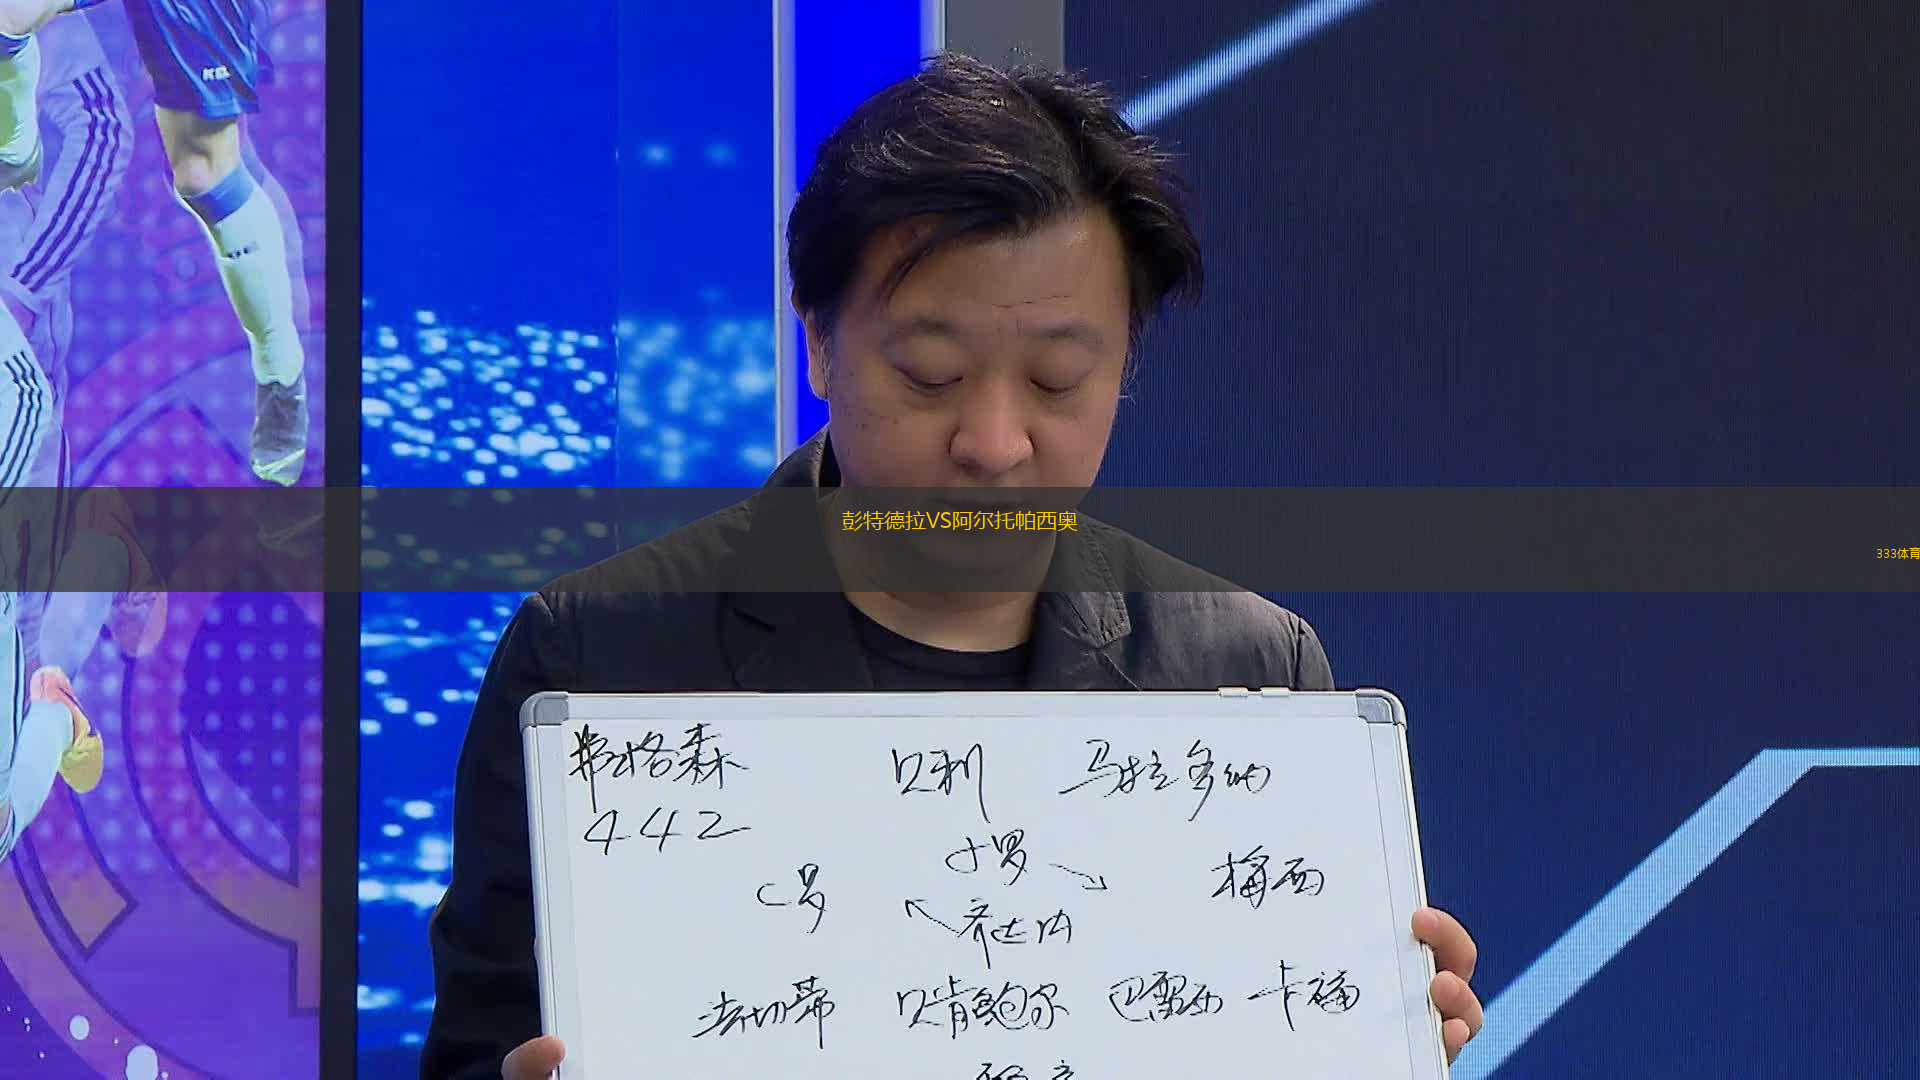 彭特德拉VS阿尔托帕西奥
333体育
弗格森 贝利 马拉多纳
442
C罗 小罗 梅西
齐达内
法切蒂 贝肯鲍尔 巴雷西 卡福